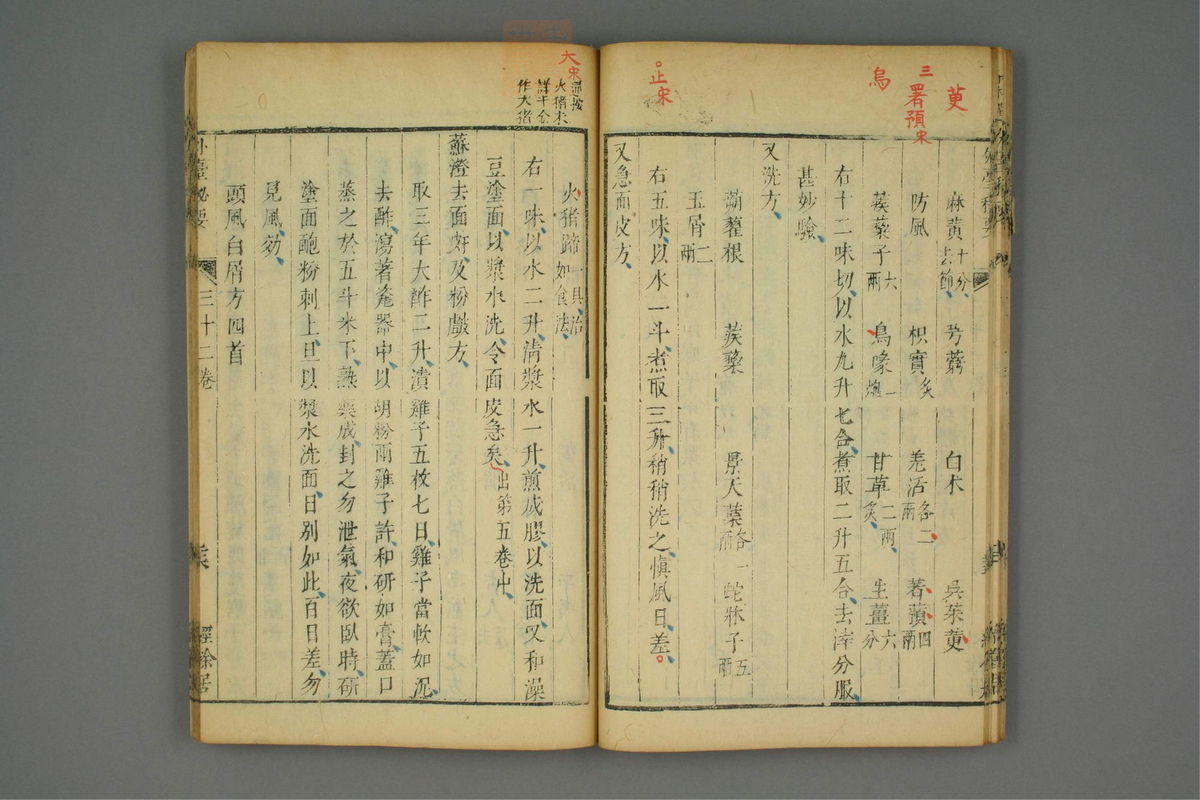 萸
三
署預宋
烏
正宋
麻黃十分去節 芎藭 白朮 吳茱萸
防風 枳實炙 羗活各二兩 薯蕷四兩
蒺藜子六兩 烏喙一炮 甘草二兩炙 生薑六分
右十二味切以水九升七合煮取二升五合去滓分服
甚妙驗
又洗方
蒴藋根 蒺藜 景天葉各一兩 蛇牀子五兩
玉屑二兩
右五味以水一斗煮取三升稍稍洗之愼風日差
又急面皮方
大宋
溫按
火猪未
詳千金
作大猪
火猪蹄一具治如食法
右一味以水二升清漿水一升煎成膠以洗面又和澡
豆塗面以漿水洗令面皮急矣出第五卷中
蘇澄去面皯及粉䵟方
取三年大酢二升漬雞子五枚七日雞子當軟如泥
去酢瀉著瓷器中以胡粉兩雞子許和研如膏蓋口
蒸之於五斗米下熟藥成封之勿泄氣夜欲臥時研
塗面皰粉刺上旦以漿水洗面日別如此百日差勿
見風効
頭風白屑方四首
外臺秘要 三十二卷 經餘居